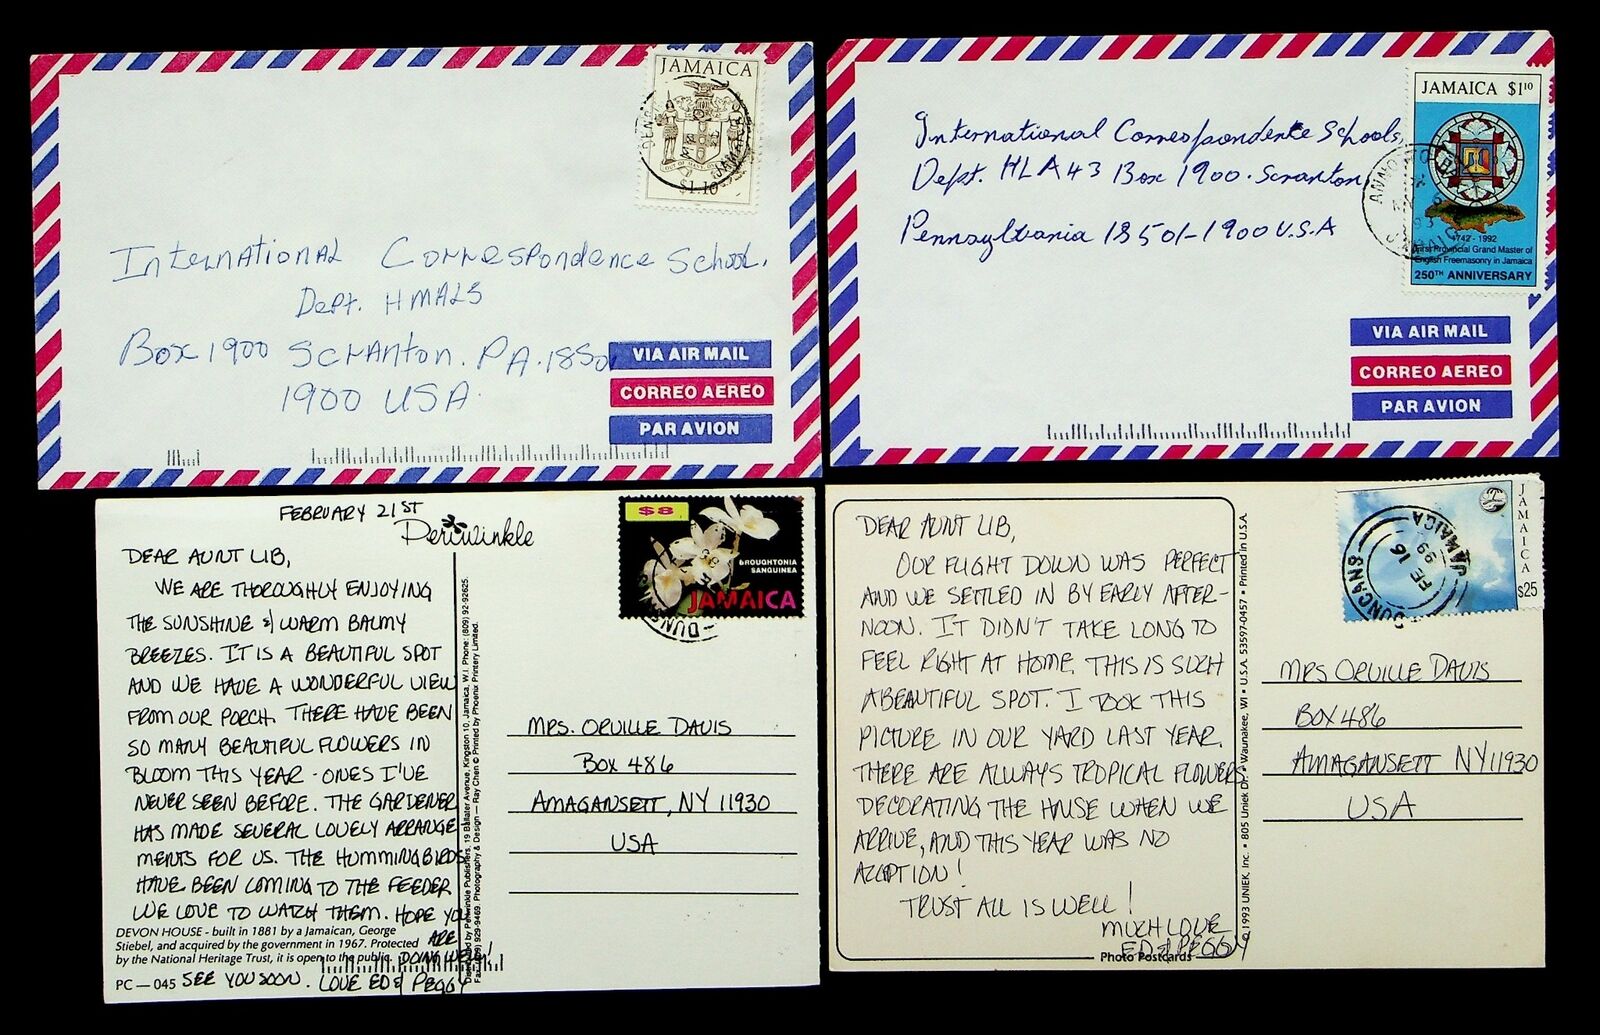 JAMAICA
$1.10
International Correspondence School.
Dept. HMALS
Box 1900 Scranton. PA. 18501
1900 USA.
VIA AIR MAIL
CORREO AEREO
PAR AVION
JAMAICA $1¹⁰
1742 - 1992
Provincial Grand Master of
English Freemasonry in Jamaica
250TH ANNIVERSARY
JAMAICA
International Correspondence Schools,
Dept. HLA43 Box 1900. Scranton,
Pennsylvania 18501-1900 U.S.A
VIA AIR MAIL
CORREO AEREO
PAR AVION
FEBRUARY 21ST
Periwinkle
DEAR AUNT LIB,
WE ARE THOROUGHLY ENJOYING
THE SUNSHINE & WARM BALMY
BREEZES. IT IS A BEAUTIFUL SPOT
AND WE HAVE A WONDERFUL VIEW
FROM OUR PORCH. THERE HAVE BEEN
SO MANY BEAUTIFUL FLOWERS IN
BLOOM THIS YEAR - ONES I'VE
NEVER SEEN BEFORE. THE GARDENER
HAS MADE SEVERAL LOVELY ARRANGE
MENTS FOR US. THE HUMMINGBIRDS
HAVE BEEN COMING TO THE FEEDER
WE LOVE TO WATCH THEM. HOPE YOU
ARE
DOING WELL!
SEE YOU SOON. LOVE ED & PEGGY
DEVON HOUSE - built in 1881 by a Jamaican, George
Stiebel, and acquired by the government in 1967. Protected
by the National Heritage Trust, it is open to the public.
PC — 045
by Periwinkle Publishers, 19 Ballater Avenue, Kingston 10, Jamaica, W.I. Phone: (809) 92-92625.
929-9469. Photography & Design - Ray Chen © Printed by Phoenix Printery Limited.
$8
BROUGHTONIA
SANGUINEA
JAMAICA
MRS. ORVILLE DAVIS
BOX 486
AMAGANSETT, NY 11930
USA
DEAR AUNT LIB,
OUR FLIGHT DOWN WAS PERFECT
AND WE SETTLED IN BY EARLY AFTER-
NOON. IT DIDN'T TAKE LONG TO
FEEL RIGHT AT HOME. THIS IS SUCH
A BEAUTIFUL SPOT. I TOOK THIS
PICTURE IN OUR YARD LAST YEAR.
THERE ARE ALWAYS TROPICAL FLOWERS
DECORATING THE HOUSE WHEN WE
ARRIVE, AND THIS YEAR WAS NO
TRUST ALL IS WELL!
MUCH LOVE
ED & PEGGY
Photo Postcards
© 1993 UNIEK, Inc. • 805 Uniek Dr. • Waunakee, WI • U.S.A. 53597-0457 • Printed in U.S.A.
JAMAICA
$25
DUNCANS
FE 16
99
JAMAICA
MRS ORVILLE DAVIS
BOX 486
AMAGANSETT NY 11930
USA